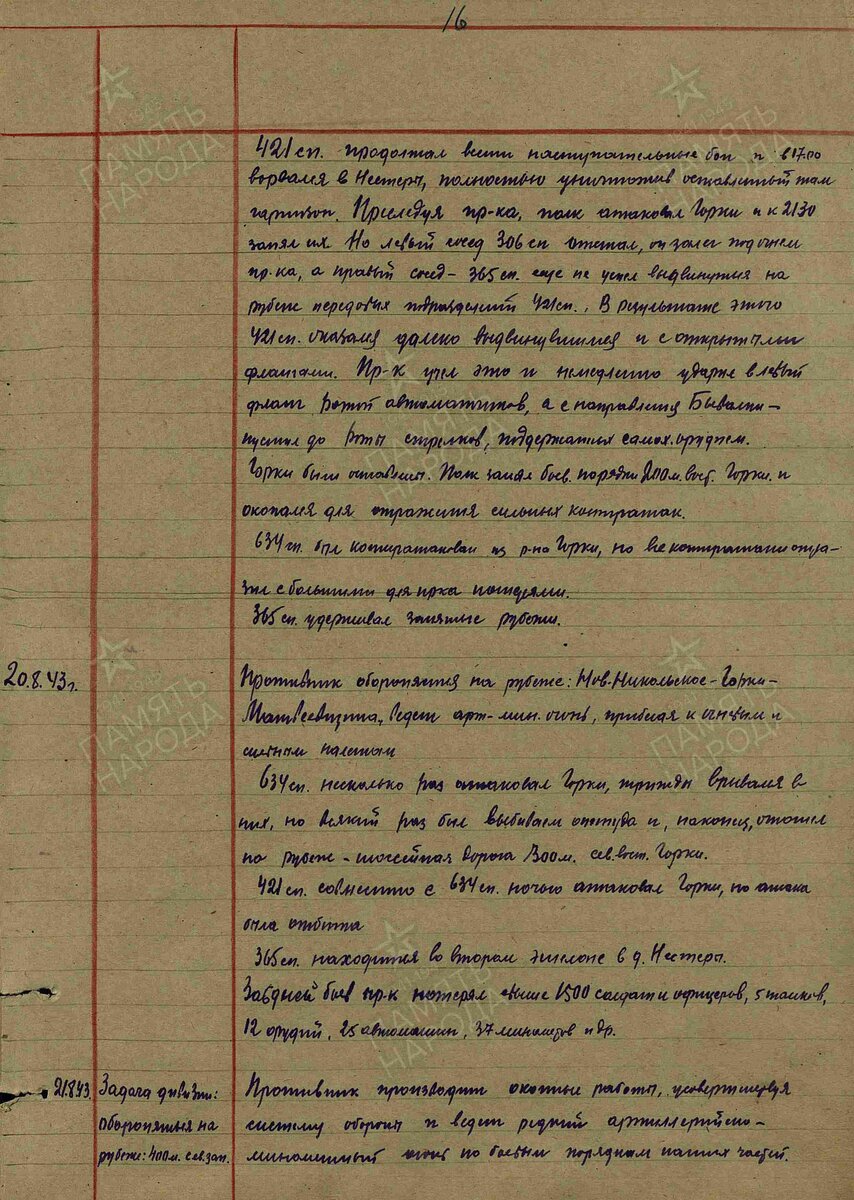 16
421 сп. продолжал вести наступательные бои и в 17.00
ворвался в Нестеры, полностью уничтожив оставленный там
гарнизон. Преследуя пр-ка, полк атаковал Горки и к 2130
занял их. Но левый сосед 306 сп отстал, он залег под огнем
пр-ка, а правый сосед - 365 сп. еще не успел выдвинуться на
рубеж передовых подразделений 421 сп. В результате этого
421 сп. оказался далеко выдвинувшимся и с открытыми
флангами. Пр-к учел это и немедленно ударил в левый
фланг ротой автоматчиков, а с направления
пустил до роты стрелков, поддержанных самох. орудием.
Горки были оставлены. Полк занял боев. порядки 200 м. вост. Горки и
окопался для отражения сильных контратак.
634 сп. был контратакован из р-на Горки, но все контратаки отра-
зил с большими для пр-ка потерями.
365 сп. удерживал занятые рубежи.
20.8.43 г.
Противник обороняется на рубеже: Нов. Никольское - Горки -
Матвеевщина, ведет арт-мин. огонь, прибегая к огневым и
налетам
634 сп. несколько раз атаковал Горки, трижды врывался в
них, но всякий раз был выбиваем оттуда и, наконец, отошел
на рубеж - шоссейная дорога 300 м. сев. вост. Горки.
421 сп. совместно с 634 сп. ночью атаковал Горки, но атака
была отбита
365 сп. находится во втором эшелоне в д. Нестеры.
За дней боев пр-к потерял свыше 1500 солдат и офицеров, 5 танков,
12 орудий, 25 автомашин, 37 минометов и др.
21.8.43.
Задача дивизии:
обороняться на
рубеже: 400 м. сев. зап.
Противник производит окопные работы, усовершенствуя
систему обороны и ведет редкий артиллерийско-
минометный огонь по боевым порядкам наших частей.
ПАМЯТЬ
НАРОДА